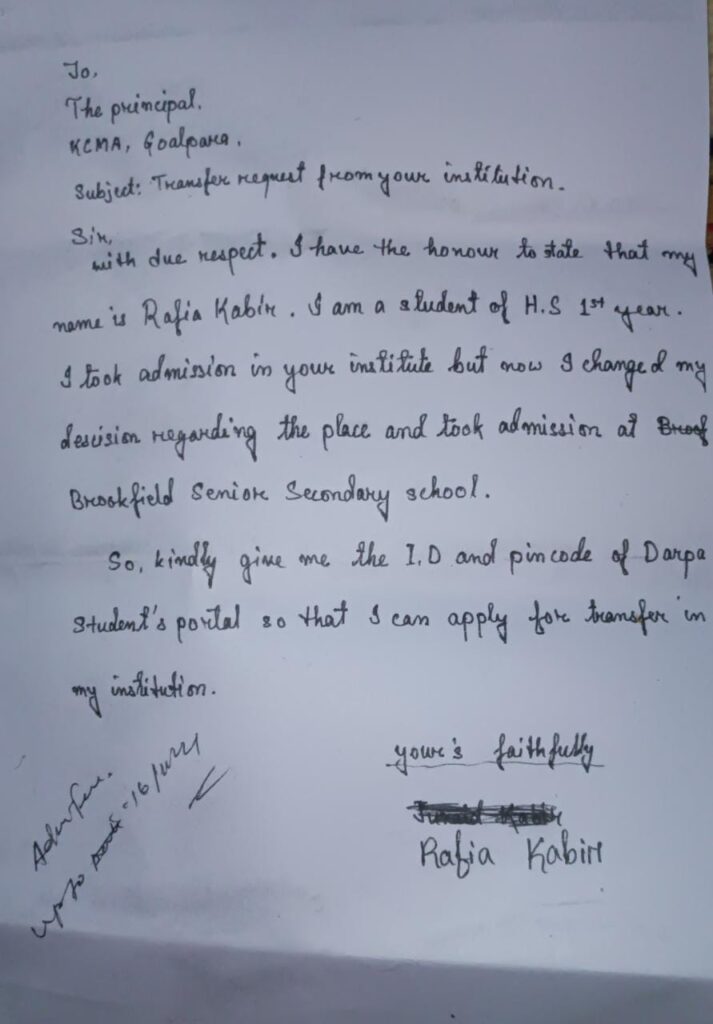 To,
The principal.
KCMA, Goalpara.
Subject: Transfer request from your institution.
Sir,
with due respect. I have the honour to state that my
name is Rafia Kabir. I am a student of H.S 1st year.
I took admission in your institute but now I changed my
descision regarding the place and took admission at Broof
Brookfield Senior Secondary school.
So, kindly give me the I.D and pincode of Darpa
student's portal so that I can apply for transfer in
my institution.
your's faithfully
Junaid Kabir
Rafia Kabir
upto